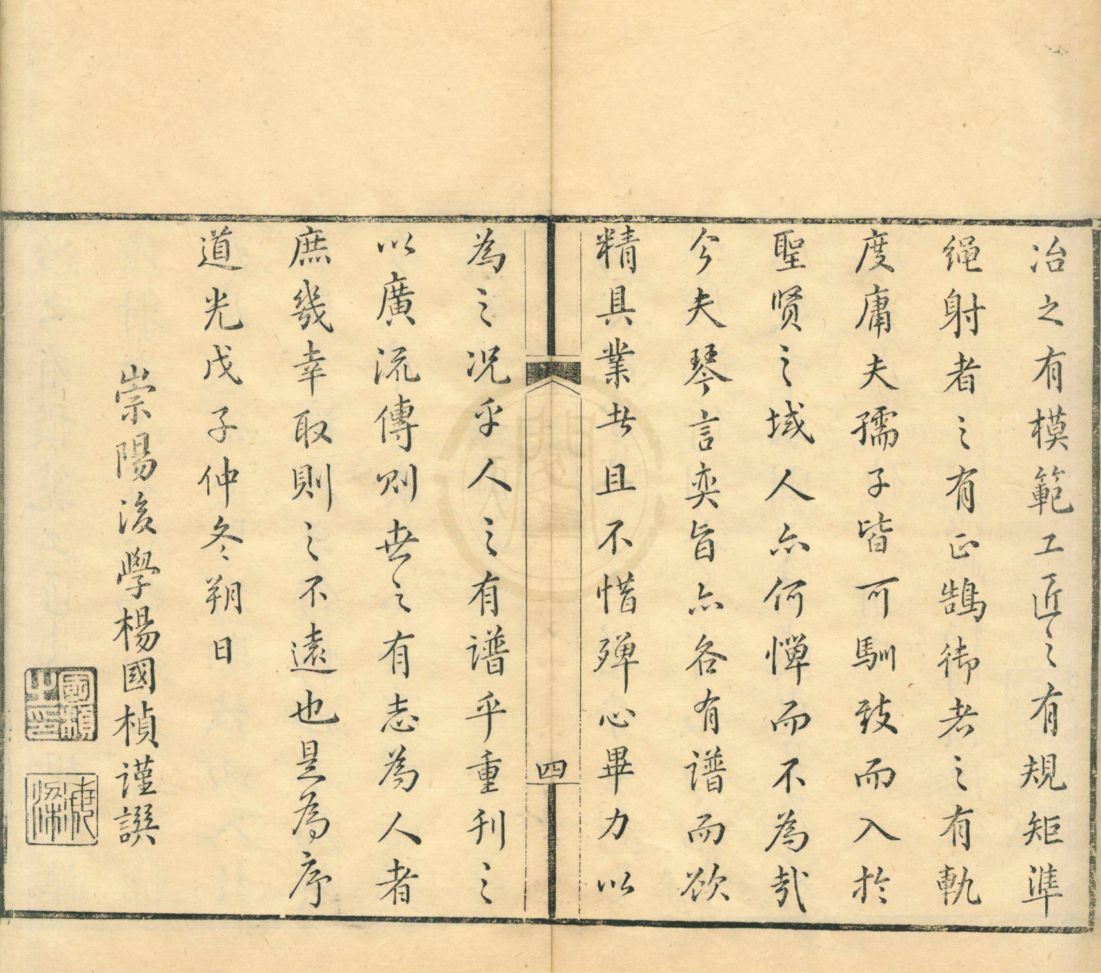 冶之有模範工匠之有規矩準
绳射者之有正鵠御者之有軌
度庸夫孺子皆可馴致而入於
聖贤之域人亦何憚而不為哉
今夫琴言奕旨亦各有谱而欲
精具業者且不惜殚心畢力以
四
為之况乎人之有谱乎重刊之
以廣流傳则世之有志為人者
庶幾幸取則之不遠也是為序
道光戊子仲冬朔日
崇陽後學楊國楨谨譔
國楨之印